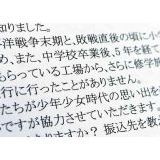 知りました。
洋戦争末期と、敗戦直後の頃に小
め、また、中学校卒業後、5年を経て
らっている工場から、さらに修学旅
行に行ったことがありません。
たちが少年少女時代の思い出を
ですが協力させていただきます。
りますか? 振込先を教え